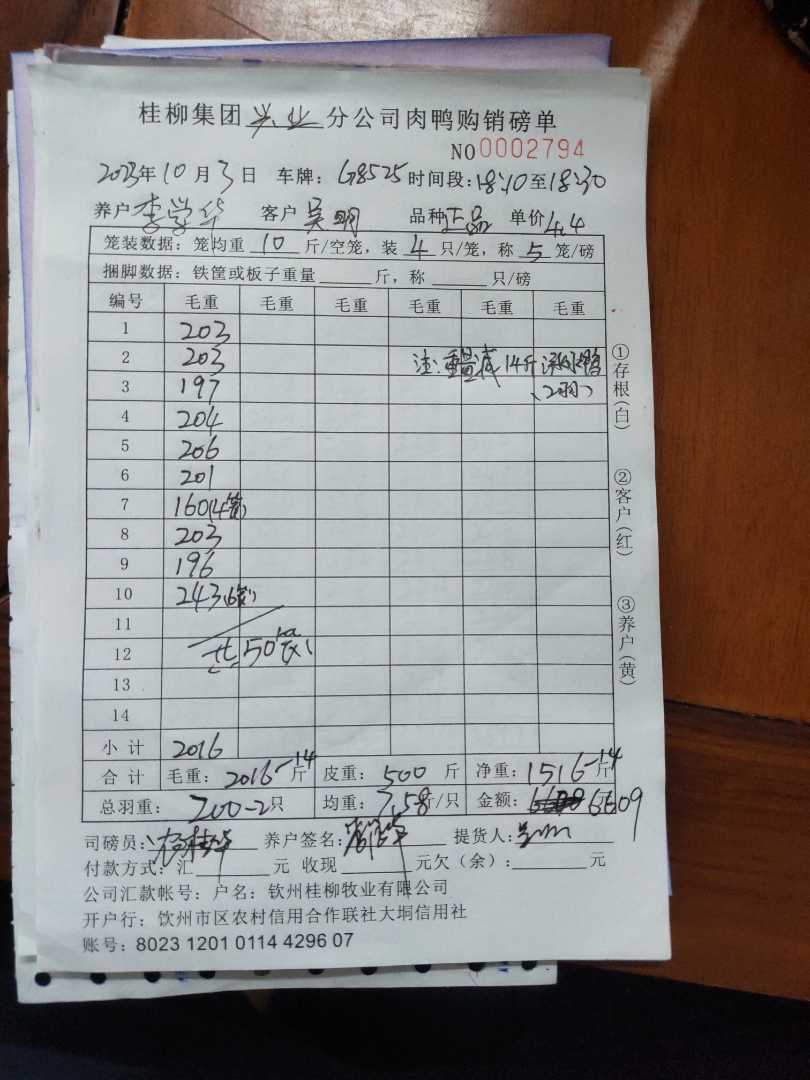 桂柳集团 兴业 分公司肉鸭购销磅单
NO 0002794
2023年10月3日 车牌：G8525 时间段：18:10至18:30
养户 李学华 客户 吴明 品种 正品 单价 4.4
笼装数据：笼均重 10 斤/空笼，装 4 只/笼，称 5 笼/磅
捆脚数据：铁筐或板子重量 斤，称 只/磅
编号 毛重 毛重 毛重 毛重 毛重 毛重
1 203
2 203 注：重量减14斤
3 197 (2羽)
4 204
5 206
6 201
7 160(4笼)
8 203
9 196
10 243(6笼)
11
12 共50笼
13
14
小计 2016
合计 毛重：2016-14斤 皮重：500 斤 净重：1516-14斤
总羽重：200-2只 均重：7.58斤/只 金额：6609
司磅员： 养户签名： 提货人：
付款方式：汇 元 收现 元欠（余）： 元
公司汇款帐号：户名：钦州桂柳牧业有限公司
开户行：钦州市区农村信用合作联社大垌信用社
账号：8023 1201 0114 4296 07
①存根（白）
②客户（红）
③养户（黄）